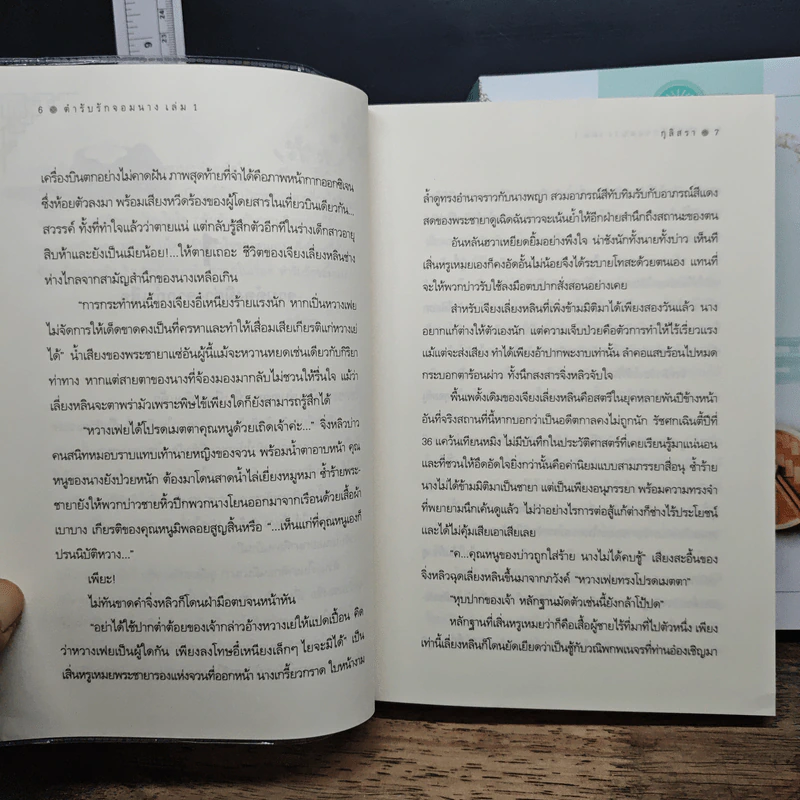 6 ❋ ตำรับรักจอมนาง เล่ม 1
เครื่องบินตกอย่างไม่คาดฝัน ภาพสุดท้ายที่จำได้คือภาพหน้ากากออกซิเจน
ซึ่งห้อยตัวลงมา พร้อมเสียงหวีดร้องของผู้โดยสารในเที่ยวบินเดียวกัน...
สวรรค์ ทั้งที่ทำใจแล้วว่าตายแน่ แต่กลับรู้สึกตัวอีกทีในร่างเด็กสาวอายุ
สิบห้าและยังเป็นเมียน้อย!...ให้ตายเถอะ ชีวิตของเจียงเลี่ยงหลินช่าง
ห่างไกลจากสามัญสำนึกของนางเหลือเกิน
“การกระทำหนนี้ของเจียงอี๋เหนียงร้ายแรงนัก หากเปิ่นหวางเฟย
ไม่จัดการให้เด็ดขาดคงเป็นที่ครหาและทำให้เสื่อมเสียเกียรติแก่หวางเย่
ได้” น้ำเสียงของพระชายาแซ่อันผู้นี้แม้จะหวานหยดเช่นเดียวกับกิริยา
ท่าทาง หากแต่สายตาของนางที่จ้องมองมากลับไม่ชวนให้รื่นใจ แม้ว่า
เลี่ยงหลินจะตาพร่ามัวเพราะพิษไข้เพียงใดก็ยังสามารถรู้สึกได้
“หวางเฟยได้โปรดเมตตาคุณหนูด้วยเถิดเจ้าค่ะ...” จิ่งหลิวบ่าว
คนสนิทหมอบราบแทบเท้านายหญิงของจวน พร้อมน้ำตาอาบหน้า คุณ
หนูของนางยังป่วยหนัก ต้องมาโดนสาดน้ำไล่เยี่ยงหมูหมา ซ้ำร้ายพระ-
ชายายังให้พวกบ่าวชายหิ้วปีกพวกนางโยนออกมาจากเรือนด้วยเสื้อผ้า
เบาบาง เกียรติของคุณหนูมิพลอยสูญสิ้นหรือ “...เห็นแก่ที่คุณหนูเองก็
ปรนนิบัติหวาง...”
เพียะ!
ไม่ทันขาดคำจิ่งหลิวก็โดนฝ่ามือตบจนหน้าหัน
“อย่าได้ใช้ปากต่ำต้อยของเจ้ากล่าวอ้างหวางเย่ให้แปดเปื้อน คิด
ว่าหวางเฟยเป็นผู้ใดกัน เพียงลงโทษอี๋เหนียงเล็กๆ ไยจะมิได้” เป็น
เสิ่นหรูเหมยพระชายารองแห่งจวนที่ออกหน้า นางเกรี้ยวกราด ใบหน้างาม
กุลิสรา ❋ 7
ล้ำดูทรงอำนาจราวกับนางพญา สวมอาภรณ์สีทับทิมรับกับอาภรณ์สีแดง
สดของพระชายาดูเฉิดฉันราวจะเน้นย้ำให้อีกฝ่ายสำนึกถึงสถานะของตน
อันหลันฮวาเหยียดยิ้มอย่างพึงใจ น่าชังนักทั้งนายทั้งบ่าว เห็นที
เสิ่นหรูเหมยเองก็คงอัดอั้นไม่น้อยจึงได้ระบายโทสะด้วยตนเอง แทนที่
จะให้พวกบ่าวรับใช้ลงมือตบปากสั่งสอนอย่างเคย
สำหรับเจียงเลี่ยงหลินที่เพิ่งข้ามมิติมาได้เพียงสองวันแล้ว นาง
อยากแก้ต่างให้ตัวเองนัก แต่ความเจ็บป่วยคือตัวการทำให้ไร้เรี่ยวแรง
แม้แต่จะส่งเสียง ทำได้เพียงอ้าปากพะงาบเท่านั้น ลำคอแสบร้อนไปหมด
กระบอกตาร้อนผ่าว ทั้งนึกสงสารจิ่งหลิวจับใจ
พื้นเพดั้งเดิมของเจียงเลี่ยงหลินคือสตรีในยุคหลายพันปีข้างหน้า
อันที่จริงสถานที่นี้หากบอกว่าเป็นอดีตกาลคงไม่ถูกนัก รัชศกเฉินตี้ปีที่
36 แคว้นเทียนหมิง ไม่มีบันทึกในประวัติศาสตร์ที่เคยเรียนรู้มาแน่นอน
และที่ชวนให้อึดอัดใจยิ่งกว่านั้นคือค่านิยมแบบสามภรรยาสี่อนุ ซ้ำร้าย
นางไม่ได้ข้ามมิติมาเป็นชายา แต่เป็นเพียงอนุภรรยา พร้อมความทรงจำ
ที่พยายามนึกเค้นดูแล้ว ไม่ว่าอย่างไรการต่อสู้แก้ต่างก็ช่างไร้ประโยชน์
และได้ไม่คุ้มเสียเอาเสียเลย
“ค...คุณหนูของบ่าวถูกใส่ร้าย นางไม่ได้คบชู้” เสียงสะอื้นของ
จิ่งหลิวฉุดเลี่ยงหลินขึ้นมาจากภวังค์ “หวางเฟยทรงโปรดเมตตา”
“หุบปากของเจ้า หลักฐานมัดตัวเช่นนี้ยังกล้าโป้ปด”
หลักฐานที่เสิ่นหรูเหมยว่าก็คือเสื้อผู้ชายไร้ที่มาที่ไปตัวหนึ่ง เพียง
เท่านี้เลี่ยงหลินก็โดนยัดเยียดว่าเป็นชู้กับวณิพกพเนจรที่ท่านอ๋องเชิญมา